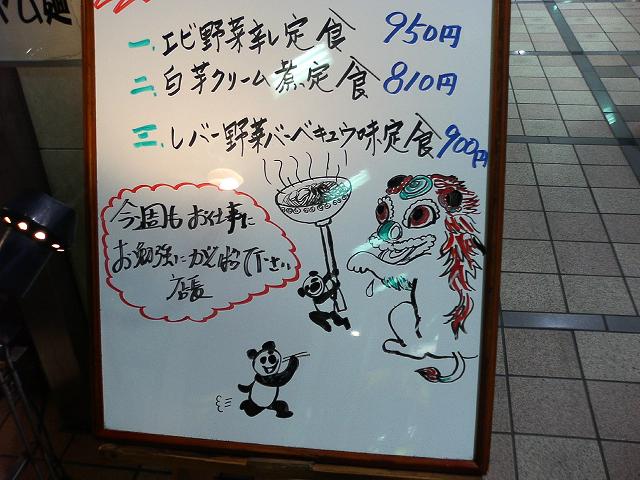 一. エビ野菜辛し定食 950円
二. 白芋クリーム煮定食 810円
三. レバー野菜バーベキュウ味定食 900円
今週もお仕事に
お勉強にがんばって下さい
店長